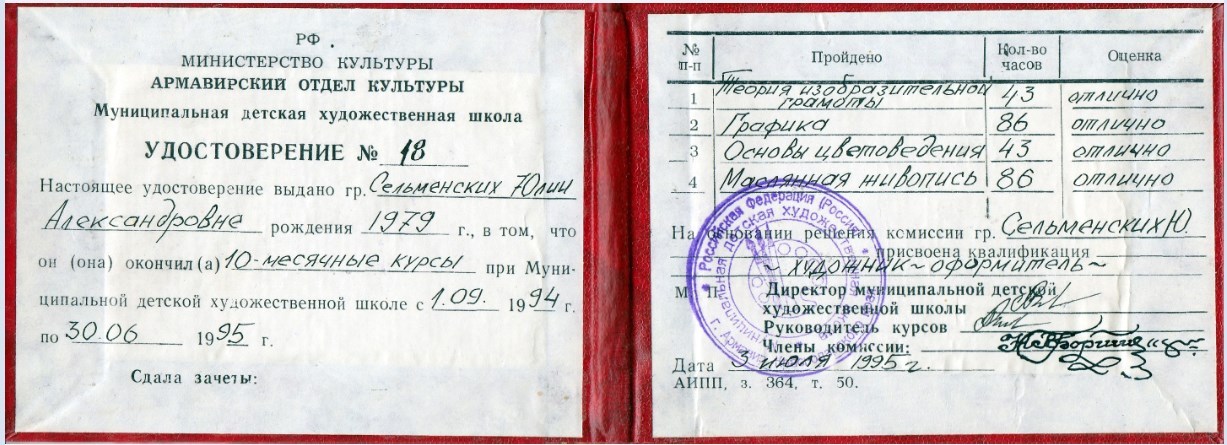 РФ.
МИНИСТЕРСТВО КУЛЬТУРЫ
АРМАВИРСКИЙ ОТДЕЛ КУЛЬТУРЫ
Муниципальная детская художественная школа
УДОСТОВЕРЕНИЕ № 18
Настоящее удостоверение выдано гр. Сельменских Юлии
Александровне рождения 1979 г., в том, что
он (она) окончил(а) 10-месячные курсы при Муни-
ципальной детской художественной школе с 1.09. 1994 г.
по 30.06 1995 г.
Сдала зачеты:
№ п-п Пройдено Кол-во часов Оценка
1 Теория изобразительной грамоты 43 отлично
2 Графика 86 отлично
3 Основы цветоведения 43 отлично
4 Маслянная живопись 86 отлично
На основании решения комиссии гр. Сельменских Ю.
присвоена квалификация
~ художник-оформитель ~
М П Директор муниципальной детской
художественной школы
Руководитель курсов
Члены комиссии:
Дата 3 июля 1995 г.
АИПП, з. 364, т. 50.
Российская Федерация (Россия)